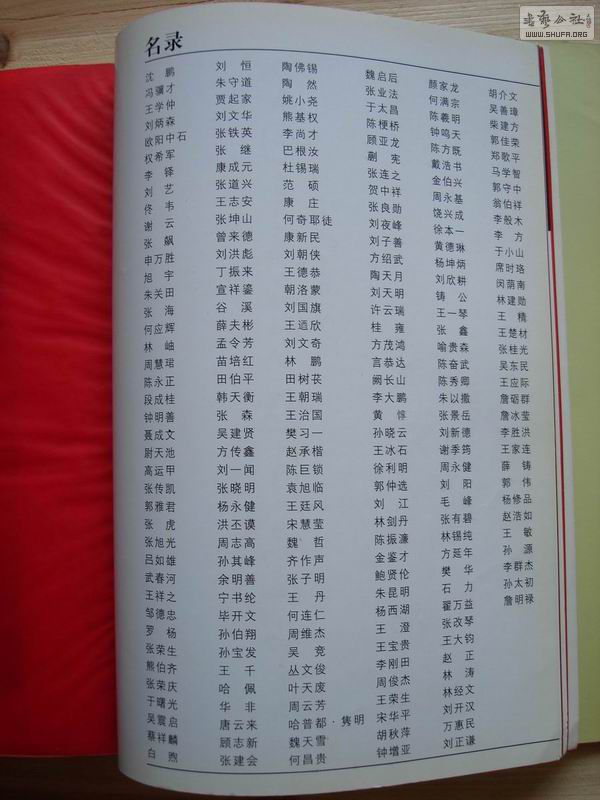 书艺公社
WWW.SHUFA.ORG
名录
沈鹏
冯骥才
王学仲
刘炳森
欧阳中石
权希军
李铎
刘艺
佟韦
谢云
张飙
申万胜
旭宇
朱关田
张海
何应辉
林岫
周慧珺
陈永正
段成桂
钟明善
聂成文
尉天池
高运甲
张传凯
郭雅君
张虎
张旭光
吕如雄
武春河
王祥之
邹德忠
罗杨
张荣生
熊伯齐
张荣庆
于曙光
吴震启
蔡祥麟
白煦
刘恒
朱守道
贾起家
刘文华
张铁英
张继
康成元
张道兴
王志安
张坤山
曾来德
刘洪彪
丁振来
宣祥鎏
谷溪
薛夫彬
孟令芳
苗培红
田伯平
韩天衡
张森
吴建贤
方传鑫
刘一闻
张晓明
杨永健
洪丕谟
周志高
孙其峰
余明善
宁书纶
毕开文
孙伯翔
孙宝发
王千
哈佩
华非
唐云来
顾志新
张建会
陶佛锡
陶然
姚小尧
熊基权
李尚才
巴根汝
杜锡瑞
范硕
康庄
何奇耶徒
康新民
刘朝侠
王德恭
朝洛蒙
刘国旗
王造欣
刘文奇
林鹏
田树苌
王朝瑞
王治国
樊习一
赵承楷
陈巨锁
袁旭临
王廷风
宋慧莹
魏哲
齐作声
张子明
王丹
何连仁
周维杰
吴竞
丛文俊
叶天废
周云芳
哈普都·隽明
魏天雪
何昌贵
魏启后
张业法
于太昌
陈梗桥
顾亚龙
蒯宪
张连之
贺中祥
张良勋
刘夜峰
刘子善
方绍武
陶天月
刘天明
许云瑞
桂雍
方茂鸿
言恭达
阙长山
李大鹏
黄惇
孙晓云
王冰石
徐利明
郭仲选
刘江
林剑丹
陈振濂
金鉴才
鲍贤伦
朱昆明
杨西湖
王澄
王宝贵
李刚田
周俊杰
王荣生
宋华平
胡秋萍
钟增亚
颜家龙
何满宗
陈羲明
钟鸣天
陈方既
戴浩书
金伯兴
周永基
饶兴成
徐本一
黄德琳
杨坤炳
刘欣耕
铸公
王一琴
张鑫
喻贵森
陈奋武
陈秀卿
朱以撒
张景岳
刘新德
谢季筠
周永健
刘阳
毛峰
张有碧
林锡纯
方延年
樊华
石力
翟万益
张改琴
王大钧
赵正
林涛
林经文
刘开汉
万惠民
刘正谦
胡介文
吴善璋
柴建方
郭佳荣
郑歌平
马学智
郭守中
翁伯祥
李般木
李方
于小山
席时珞
闵荫南
林建勋
王精
王楚材
张桂光
吴东民
王应际
詹砺群
詹冰莹
李胜洪
王家连
薛铸
郭伟
杨修品
赵浩如
王敏
孙源
李群杰
孙太初
詹明禄